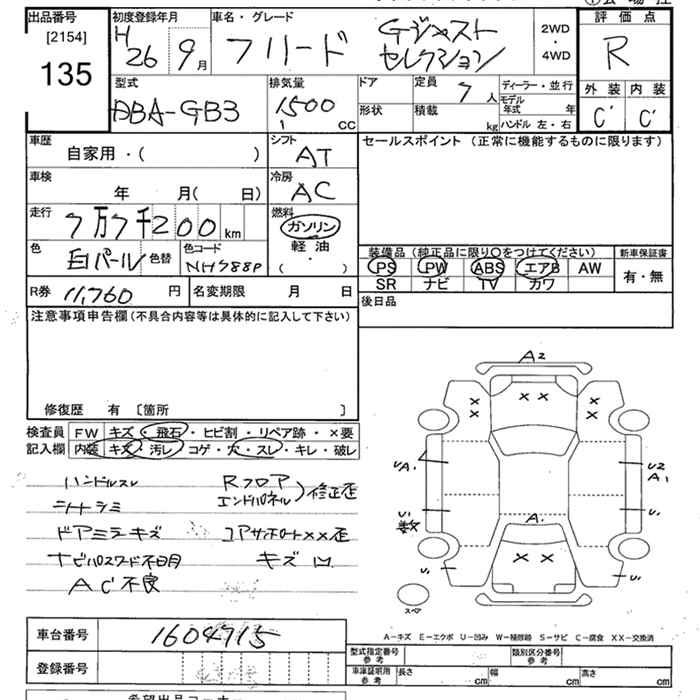 出品番号 初度登録年月 車名・グレード 評価点
[2154]
135
H 26 9月 フリード Gジャスト セレクション 2WD ・ 4WD R
型式 排気量 ドア 定員 7人 ディーラー・並行 外装 内装
DBA-GB3 1500 CC 形状 積載 kg モデル年式 年 ハンドル 左・右 C' C'
車歴 シフト セールスポイント (正常に機能するものに限ります)
自家用・( ) AT
車検 冷房
年 月( 日) AC
走行 燃料
7万7千200km ガソリン
軽油
( ・ )
色 白パール 色替 色コード NH788P
装備品 (純正品に限り〇をつけてください) 新車保証書
PS PW ABS エアB AW 有・無
SR ナビ TV カワ
R券 11,760 円 名変期限 月 日 後日品
注意事項申告欄 (不具合内容等は具体的に記入して下さい)
修復歴 有 [箇所 ]
検査員 FW キズ・飛石・ヒビ割・リペア跡・×要
記入欄 内装 キズ・汚レ・コゲ・穴・スレ・キレ・破レ
ハンドルスレ Rフロア
エンドパネル 修正歪
シートシミ
ドアミラーキズ コアサポートXX歪
ナビパスワード不明 キズ凹
AC不良
A2
× × × × × ×
UA1 U2
A1
U1 A1 U1
数
× ×
U1 U1
スペア
A-キズ E-エクボ U-凹み W-補修跡 S-サビ C-腐食 XX-交換済
車台番号 1604715
型式指定番号 参考 類別区分番号 参考
登録番号 車庫証明用 参考 長さ cm 幅 cm 高さ cm
希望出品コーナー